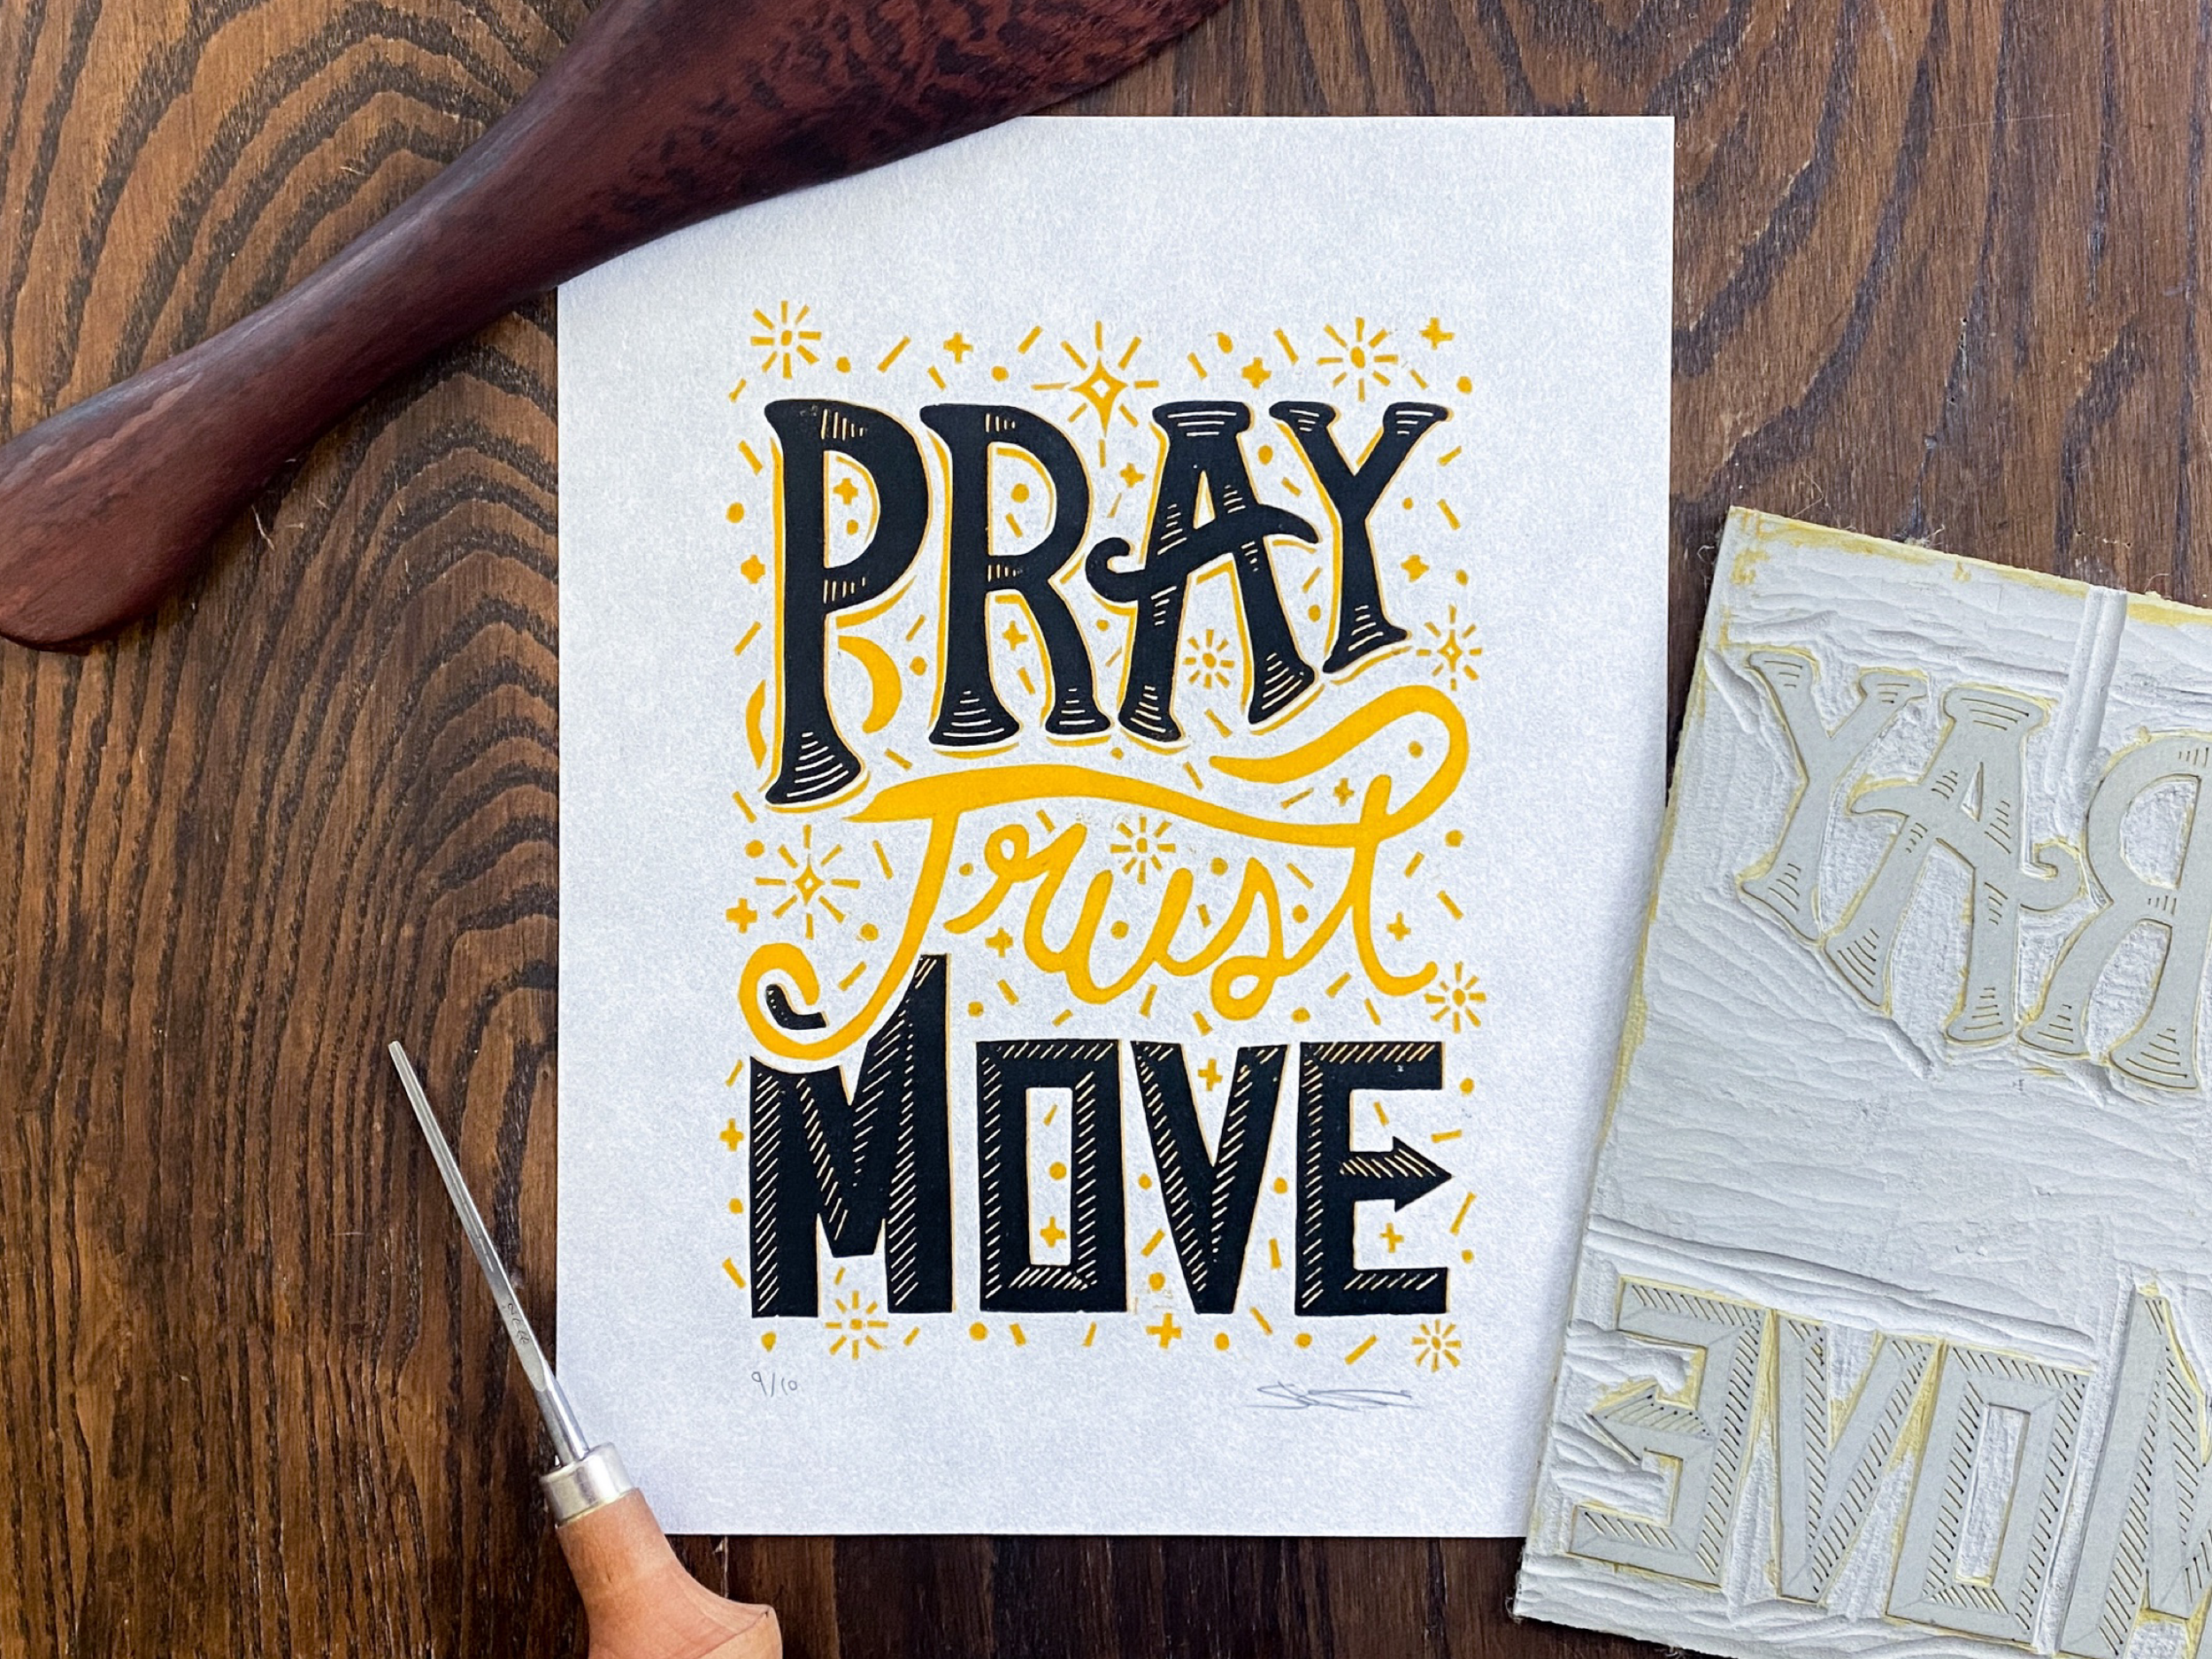 PRAY
Trust
MOVE
9/10
YAR
EVOM